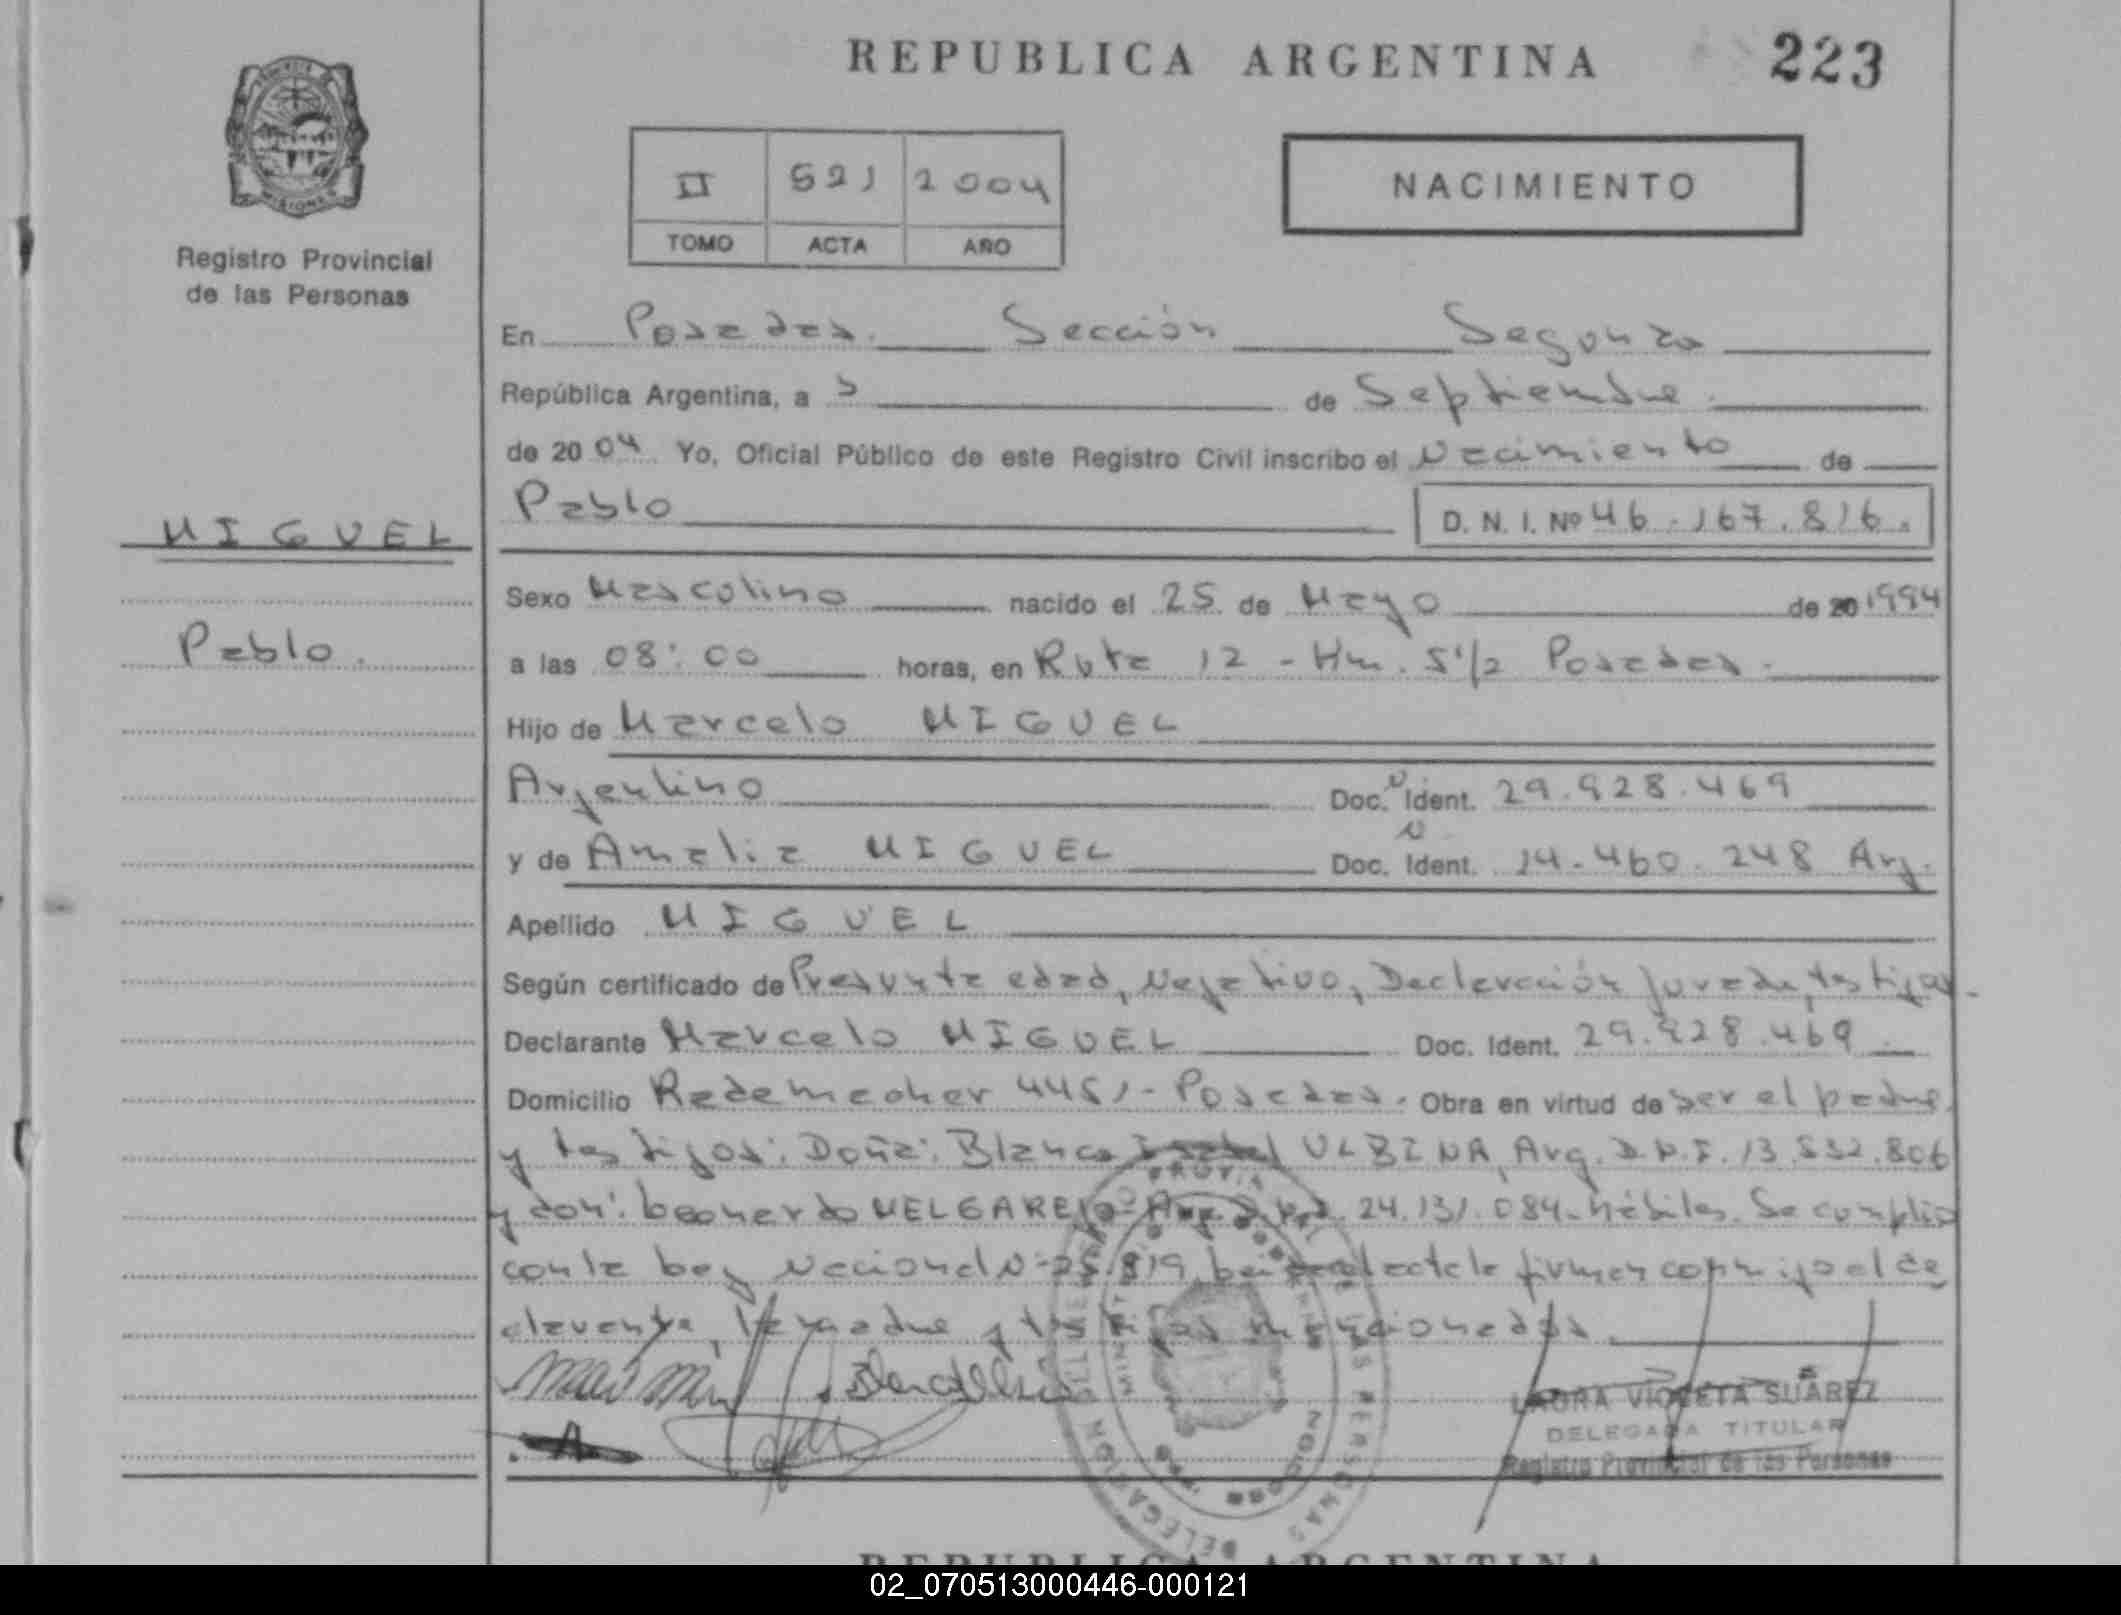 REPUBLICA ARGENTINA
223
Registro Provincial
de las Personas
II 521 2004
TOMO ACTA AÑO
NACIMIENTO
En Posadas. Sección Segunda
República Argentina, a 3 de Septiembre.
de 2004 Yo, Oficial Público de este Registro Civil inscribo el Nacimiento de
Pablo D. N. I. Nº 46.167.816.
MIGUEL
Pablo.
Sexo Masculino nacido el 25 de Mayo de 20 1994
a las 08:00 horas, en Ruta 12 - Km. 5 1/2 Posadas.
Hijo de Marcelo MIGUEL
Argentino Doc. Ident. 29.928.469
y de Amalia MIGUEL Doc. Ident. 14.460.248 Arg.
Apellido MIGUEL
Según certificado de Presunta edad, Negativo, Declaración Jurada, testigos.
Declarante Marcelo MIGUEL Doc. Ident. 29.928.469
Domicilio 4451 - Posadas. Obra en virtud de ser el padre
y testigos: Doña: Blanca ULBINA, Arg. D.N.I. 13.532.806
y don: Leonardo MELGAREJO - Arg. D.N.I. 24.131.084 - hábiles. Se cumplió
con la Ley Nacional N° 25.819, leída el acta la firman conmigo el de
clarante, la madre y testigos mencionados.
LAURA VIOLETA SUÁREZ
DELEGADA TITULAR
Registro Provincial de las Personas
REPUBLICA ARGENTINA
02_070513000446-000121